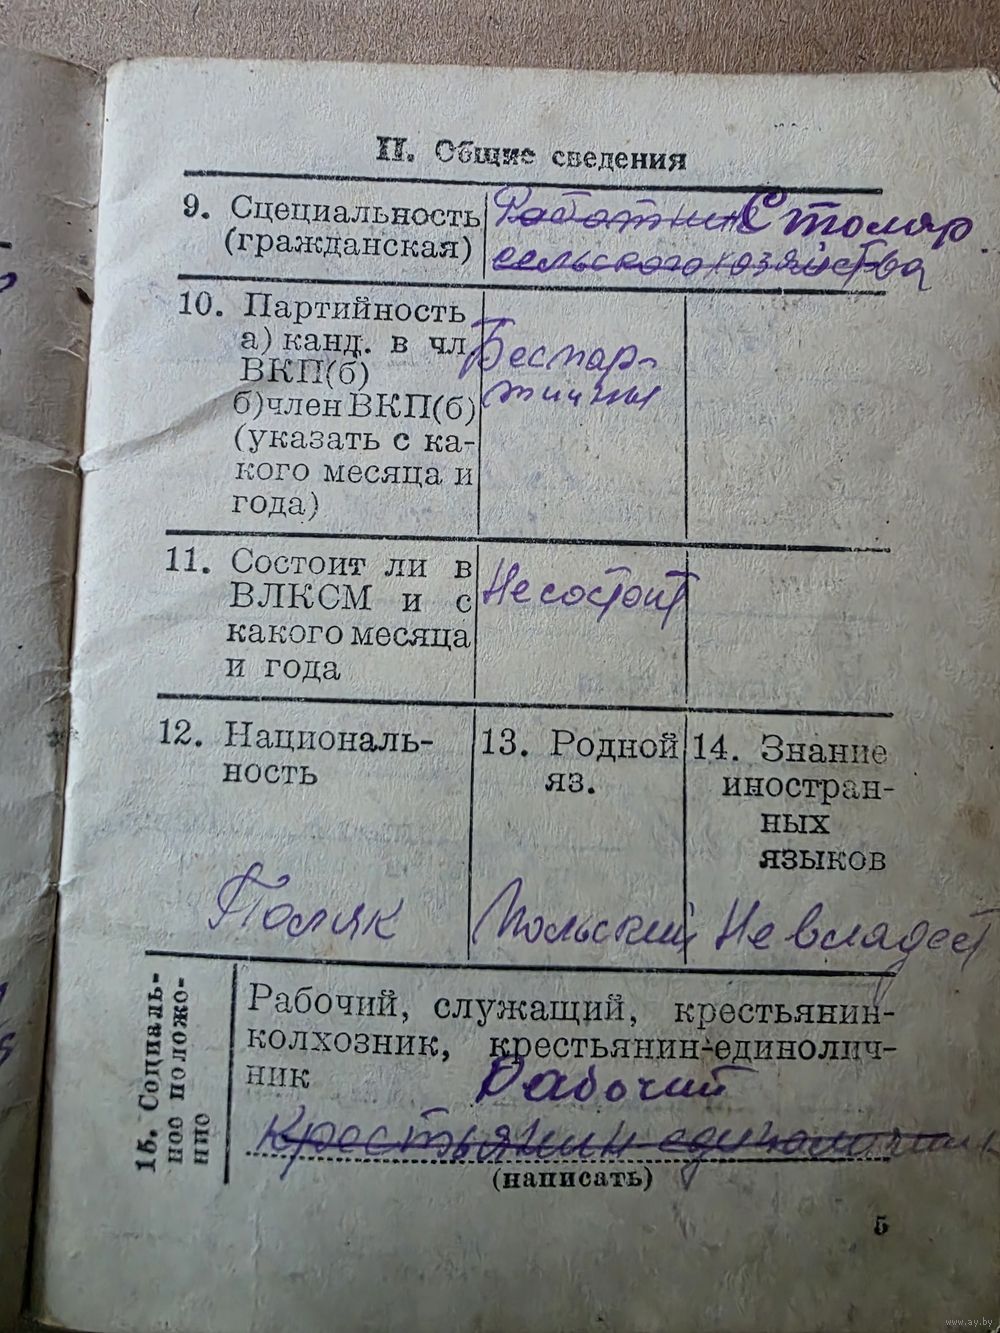 II. Общие сведения
9. Специальность
(гражданская)
Работник Столяр
сельского хозяйства
10. Партийность
а) канд. в чл.
ВКП(б)
б)член ВКП(б)
(указать с ка-
кого месяца и
года)
Беспар-
тийный
11. Состоит ли в
ВЛКСМ и с
какого месяца
и года
Не состоит
12. Националь-
ность
Поляк
13. Родной
яз.
Польский
14. Знание
иностран-
ных
языков
Не владеет
15. Социаль-
ное положе-
ние
Рабочий, служащий, крестьянин-
колхозник, крестьянин-единолич-
ник
Рабочий
Крестьянин единоличник
(написать)
5
www.ay.by